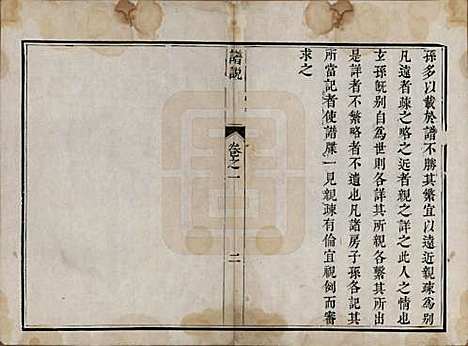 孫多以載於譜不勝其繁宜以遠近親疎爲別
凡遠者疎之略之近者親之詳之此人之情也
玄孫旣别自爲世則各詳其所親各繫其所
是詳者不繁略者不遺也凡諸房子孫各記其
所當記者使譜牒一見親疎有倫宜視例而審
求之
譜說
卷之一
二